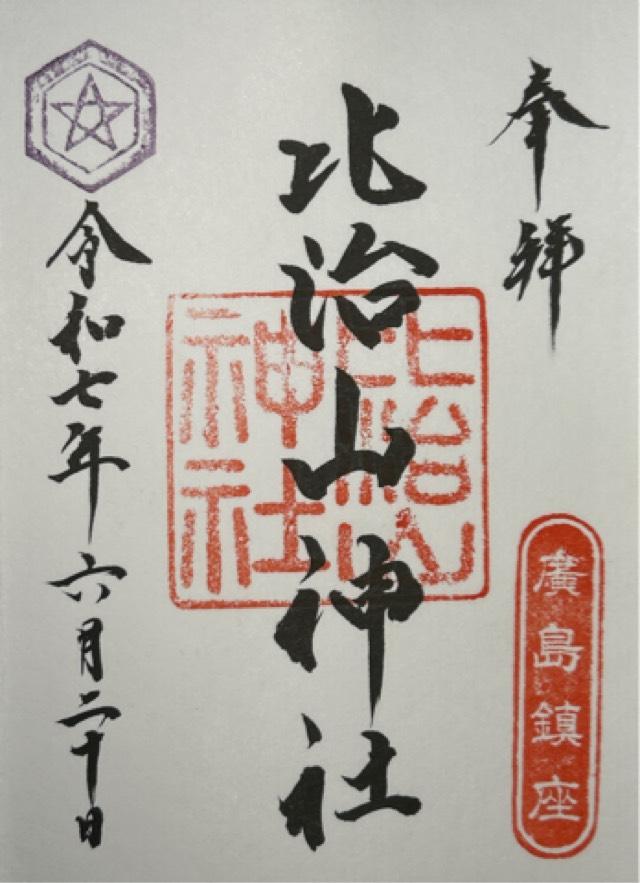 奉拝
廣島鎮座
比治山神社
比治山
神社
令和七年六月二十日